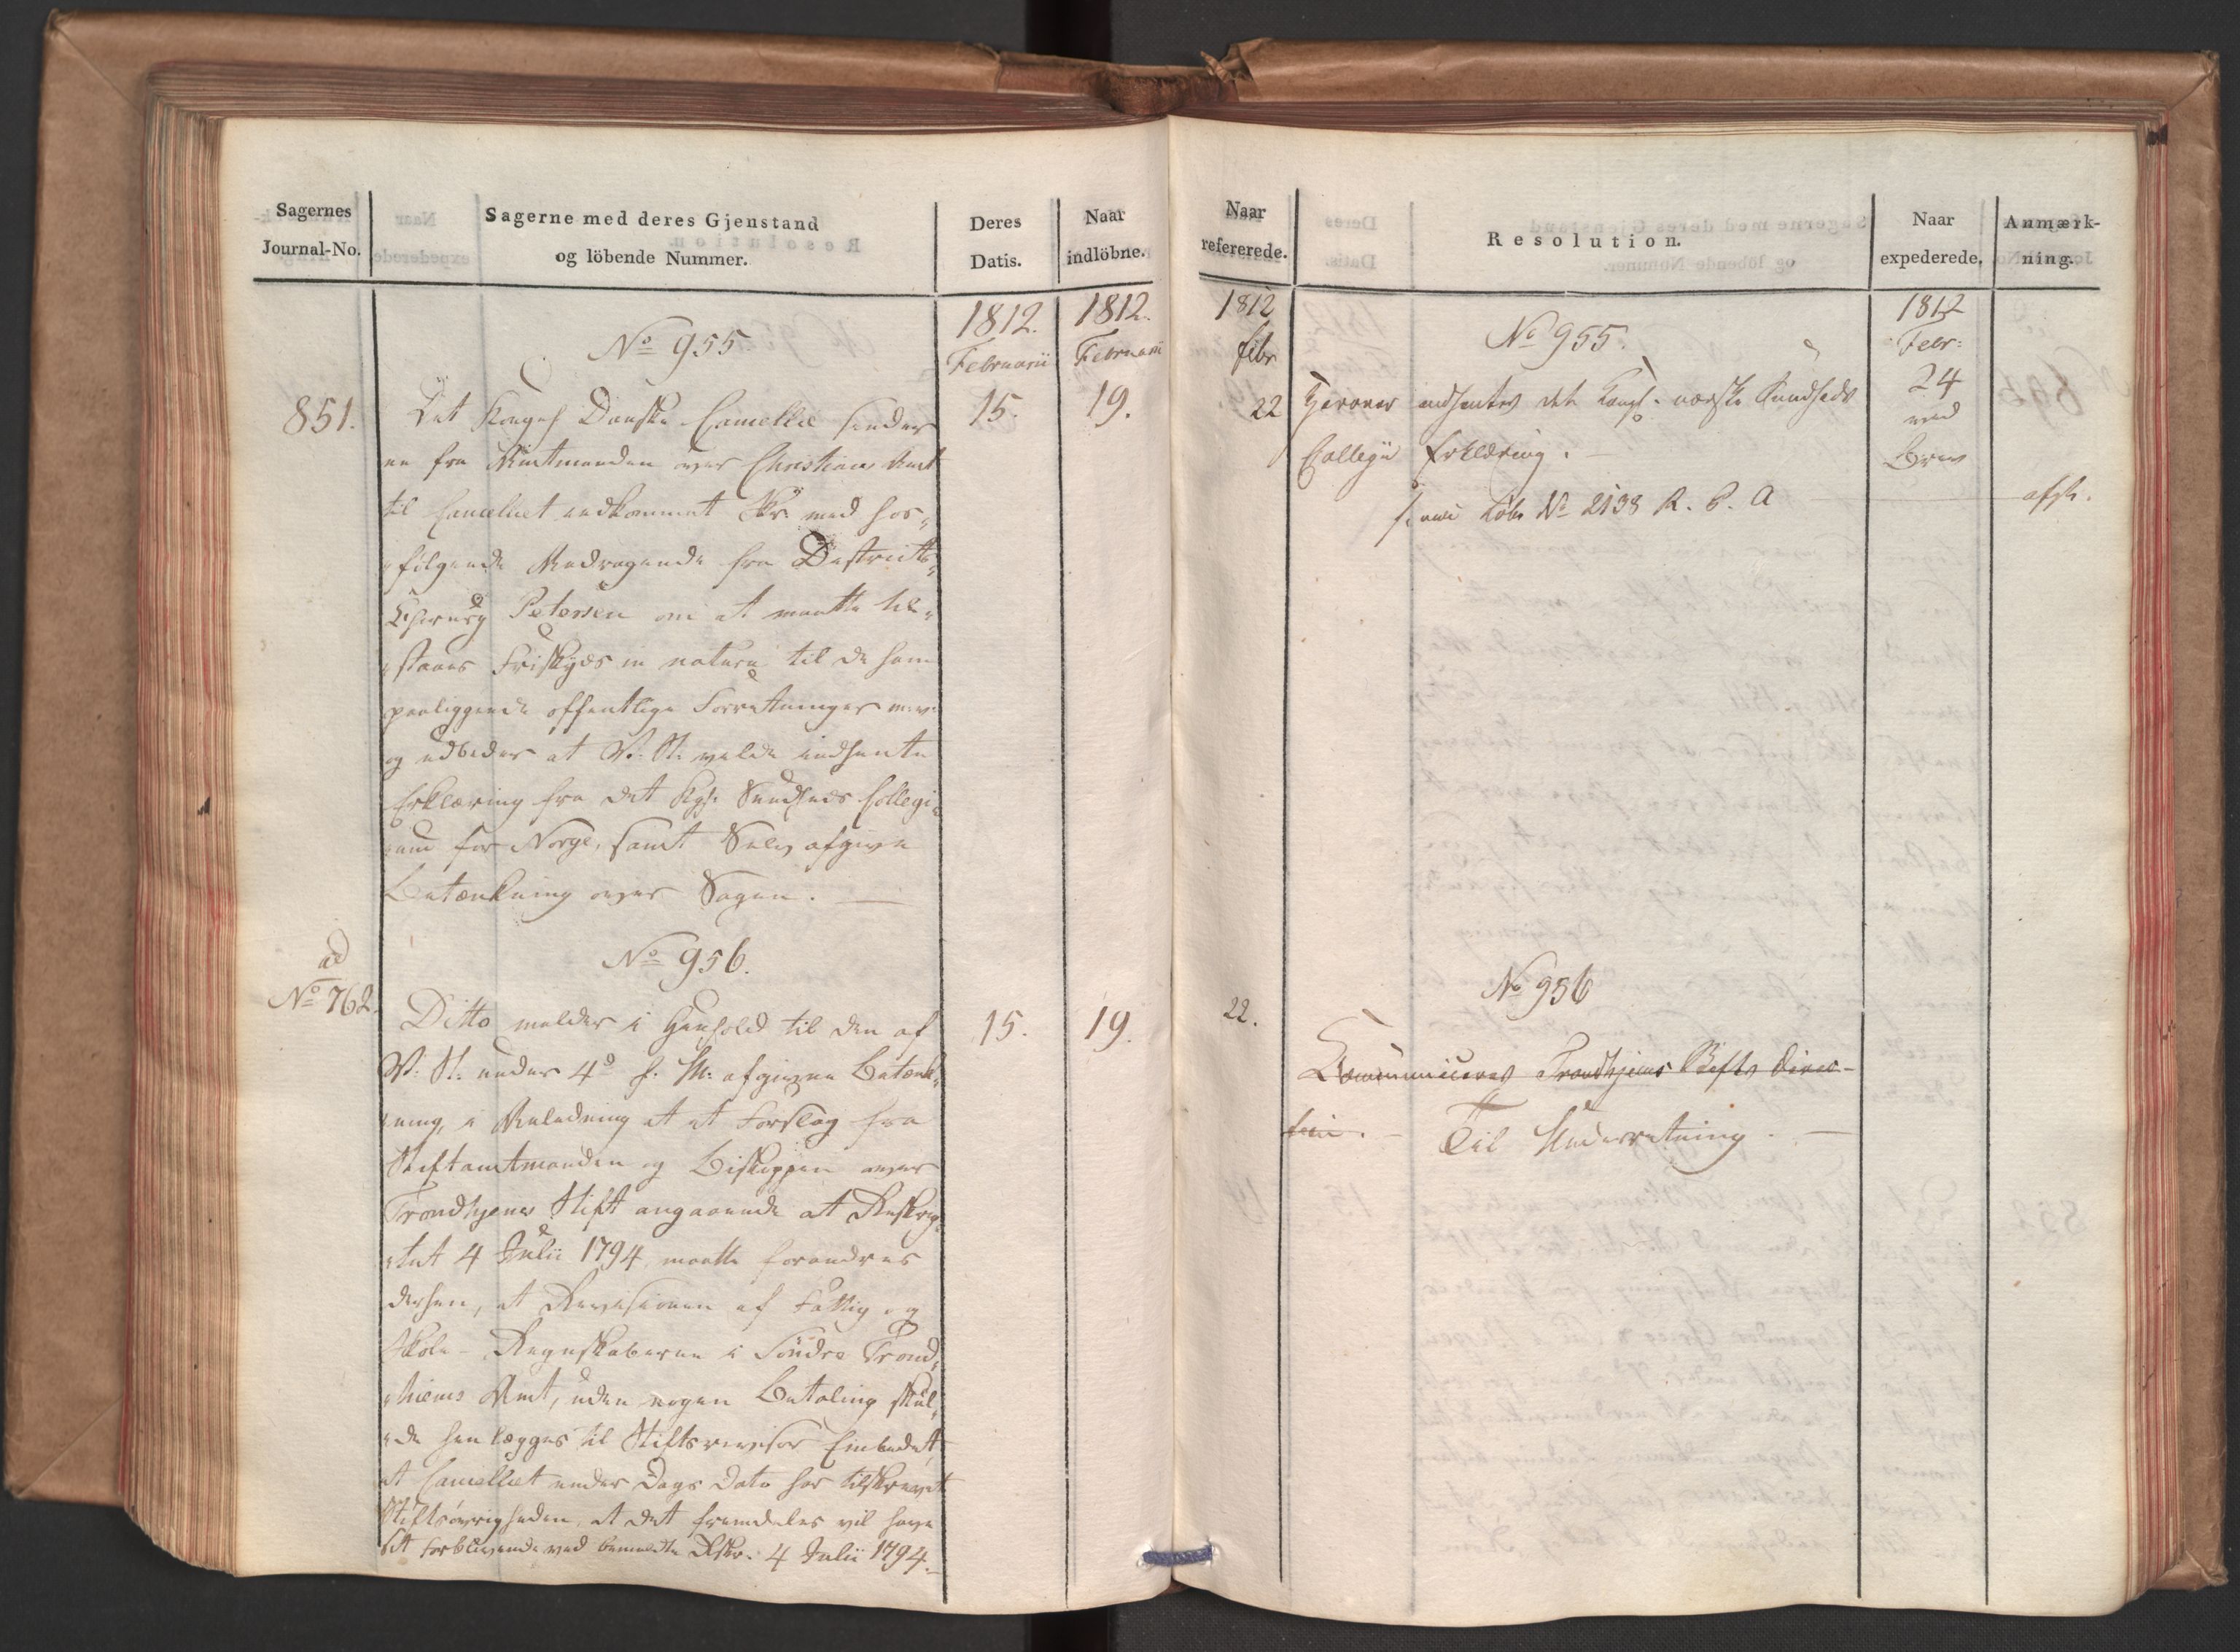 Sagernes
Journal-No.
Sagerne med deres Gjenstand
og löbende Nummer.
Deres
Datis.
Naar
indlöbne.
1812.
Februarii
1812.
Februarii
No 955
851.
15.
19.
Det Kongel Danske Cancellie sender
en fra Amtmanden over Christians Amt
til Cancelliet indkommet Skr. med hos-
følgende Andragende fra Districts
Chirurg Petersen om at maatte til-
staaes Friskyds in natura til de ham
paaliggende offentlige Forretninger m. v.
og udbeder at V. St. vilde indhente
Erklæring fra det Kgl. Sundheds Collegi-
um for Norge, samt Selv afgive
Betænkning over Sagen. —
ad
No 762.
No 956.
15.
19.
Ditto melder i Henhold til den af
V. St. under 4de f. M. afgivne Betænk-
ning, i Anledning af et Forslag fra
Stiftamtmanden og Biskoppen over
Trondhjems Stift angaaende at Rescrip-
tet 4 Julii 1794 maatte forandres
derhen, at Revisionen af Fattig og
Skole-Regnskaberne i Söndre Trond-
hiems Amt, uden nogen Betaling skul-
de henlægges til Stiftsrevisor Embedet,
at Cancelliet under Dags Dato har tilskrevet
Stiftsøvrigheden, at det fremdeles vil have
sit Forblivende ved bemeldte Rskr. 4 Julii 1794.
Naar
refererede.
Resolution.
Naar
expederede.
Anmærk-
ning.
1812
febr
1812
Febr:
No 955.
22
24
med
Brev
Herover indhentes det Kongl. norske Sundheds
Collegii Erklæring. —
Löb No 2138 R. P. A
afsk.
No 956
22.
Communiceres Trondhjems Stifts Direc-
tion. — Til Underretning. —